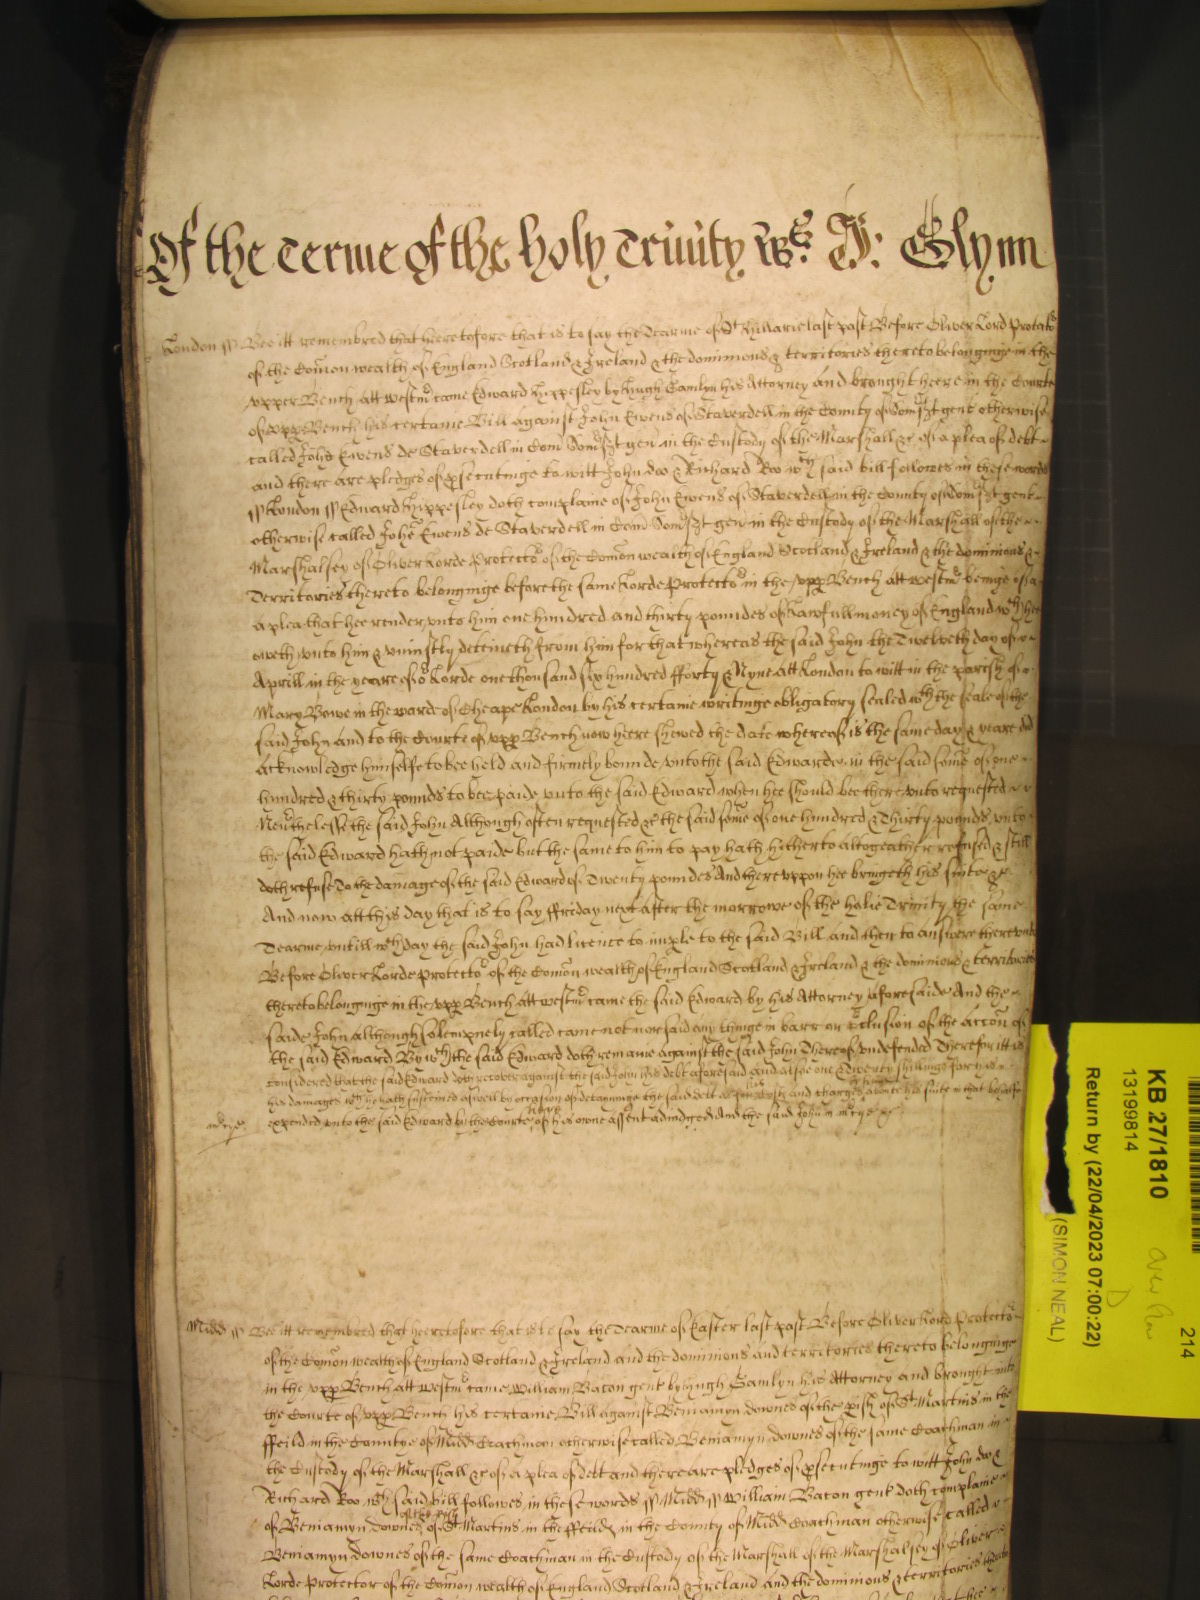 Of the Terme of the holy Trinity Wts. J: Glynn
London ss Bee itt remembred that heeretofore that is to say the Tearme of St Hillarie last past Before Oliver Lord Protector
of the Com̄on wealth of England Scotland & Ireland & the dominions & territories theretobelonginge in the
upper Bench att westmr came Edward Hippesley by Hugh Samlyn his Attorney and brought heere in the Courte
of upper Bench his certame Bill against John Ewens of Staverdell in the County of Somst gent otherwise
called John Ewens de Staverdell in Com Somst gen in the Custody of the Marshall &c of a plea of debt
and there are pledges of psecutinge to witt John doo & Richard Roo wch said bill followes in these words
ss London ss Edward Hippesley doth complaine of John Ewens of Staverdell in the County of Somst gent
otherwise called John Ewens de Staverdell in Com Somst gen in the Custody of the Marshall of the
Marshalsey of Oliver Lorde Protector of the Com̄on wealth of England Scotland & Ireland & the dominions &
Territories thereto belonginge before the same Lorde Protector in the upp Bench att westmr beinge of a
a plea that hee render unto him one hundred and thirty poundes of Lawfull money of England wch hee
oweth unto him & uniustly deteineth from him for that whereas the said John the Twelveth day of
Aprill in the yeare of or Lorde one thousand six hundred fforty & Nyne att London to witt in the parish of
Mary Bowe in the warde of Cheape London by his certaine writinge obligatory sealed wth the seale of the
said John and to the Courte of upp Bench now heere shewed the date whereof is the same day & yeare did
acknowledge himselfe to bee held and firmely bounde unto the said Edwarde in the said som̄e of one
hundred & thirty pounds to bee paide unto the said Edward when hee should bee thereunto requested
Nevthelesse the said John Although often requested &c the said som̄e of one hundred & Thirty pounds unto
the said Edward hath not paide but the same to him to pay hath hitherto altogeather refused & still
doth refuse To the damage of the said Edward of Twenty poundes And thereuppon hee bringeth his suite &c
And now att this day that is to say ffriday next after the morrowe of the holie Trinity the same
Tearme untill wch day the said John had licence to imple to the said Bill and then to answere thereunto
Before Oliver Lorde Protector of the Com̄on wealth of England Scotland & Ireland & the dominions & territories
theretobelonginge in the upp Bench att westmr came the said Edward by his Attorney aforesaide And the
saide John although solempnely called came not nor said any thinge in barr or pclusion of the acc̄on of
the said Edward By wch the said Edward doth remaine against the said John Thereof undefended Therefore itt is
considered that the said Edward doth recover against the said John his debt aforesaid and alsoe one & twenty shillings for his
his damages wch he hath susteined aswell by occasion of detaininge the said debt as for his Costs and charges by him about his suite in that behalfe
expended unto the said Edward by the Courte heere of his owne assent adiudged And the said John in mcye &c
mcye
Midd ss Bee itt remembred that heeretofore that is to say the Tearme of Easter last past Before Oliver Lord Protector
of the Com̄on wealth of England Scotland & Ireland and the dominions and territories thereto belonginge
in the upp Bench att westmr came William Bacon gent by Hugh Samlyn his Attorney and brought into
the Courte of upp Bench his certaine Bill against Beniamyn downes of the pish of St Martins in the
ffeild in the Countye of Midd Coachman otherwise called Beniamyn downes of the same Coachman in
the Custody of the Marshall &c of a plea of debt and there are pledges of psecutinge to witt John doo &
Richard Roo wch said bill followes in these words ss Midd ss William Bacon gent doth complaine
of Beniamyn downes of the pish of St Martins in the ffeilds in the County of Midd Coachman otherwise called
Beniamyn downes of the same Coachman in the Custody of the Marshall of the Marshalsey of Oliver
Lorde Protector of the Com̄on wealth of England Scotland & Ireland and the dominions & territories thereto
214
KB 27/1810
13199814
Return by (22/04/2023 07:00:22)
(SIMON NEAL)